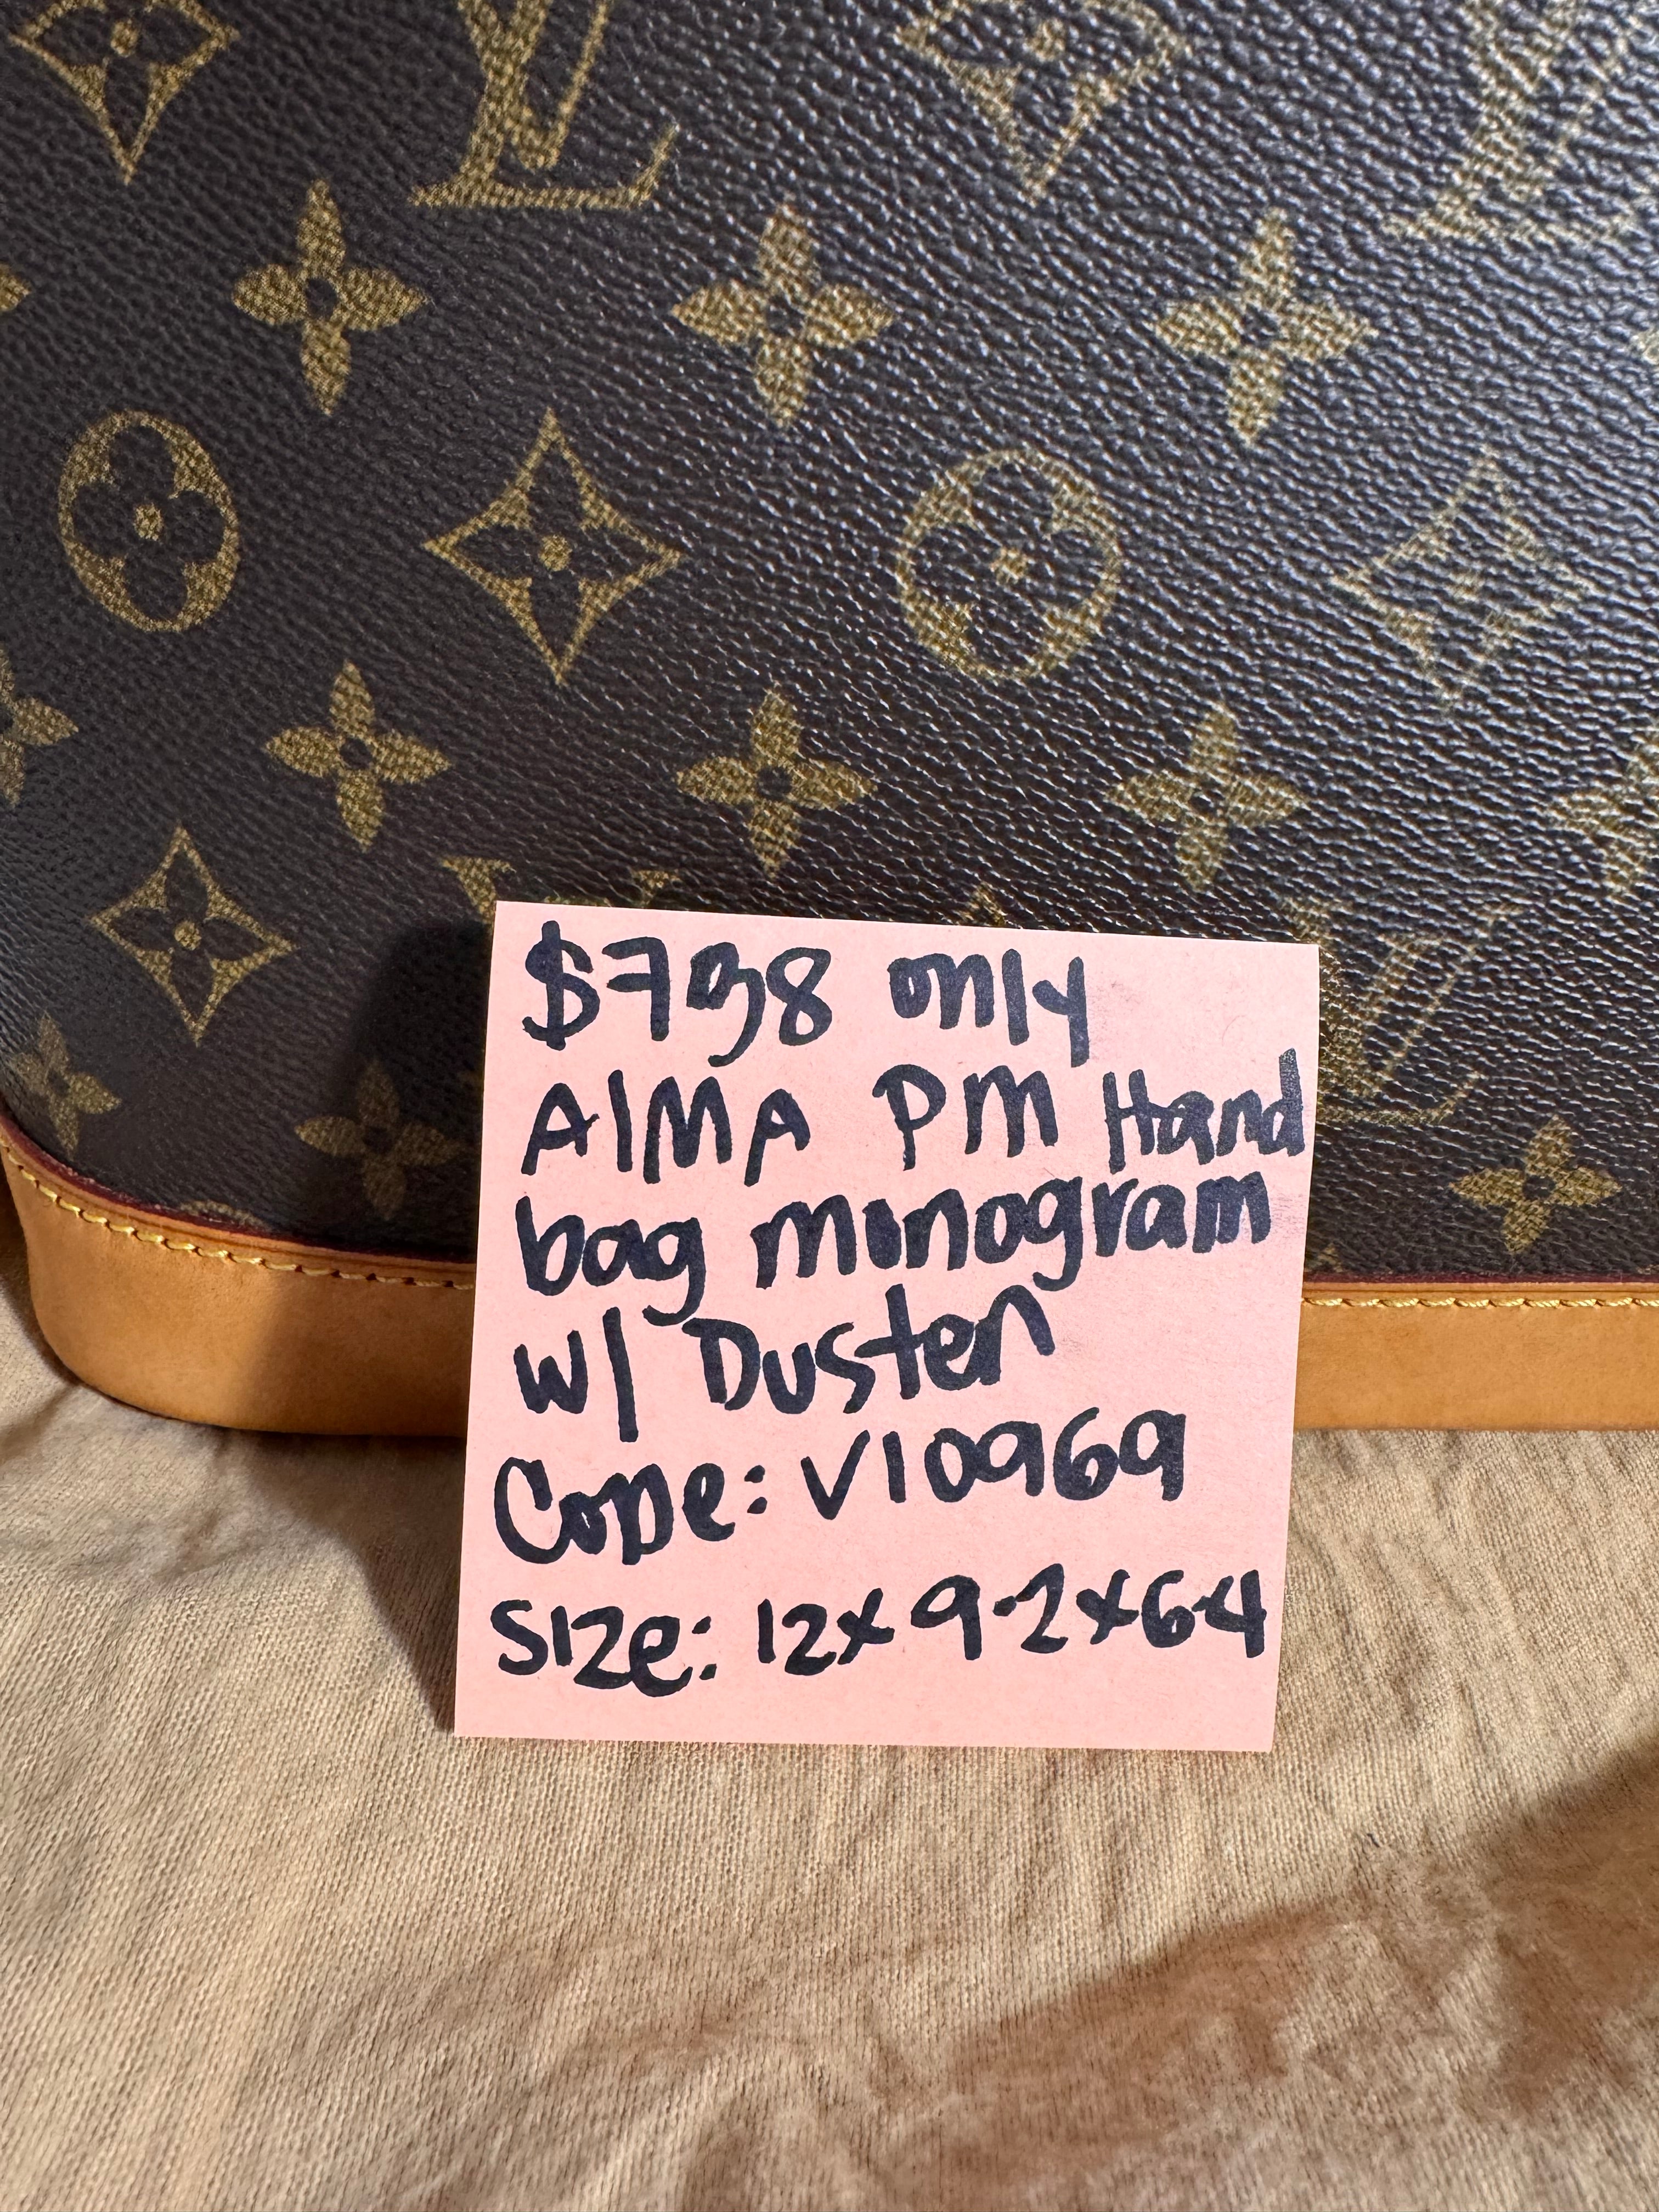 $738 only
AlMA PM Hand
bag monogram
w/ Duster
CoDe: VI0969
SIZe: 12x9.2x6.4